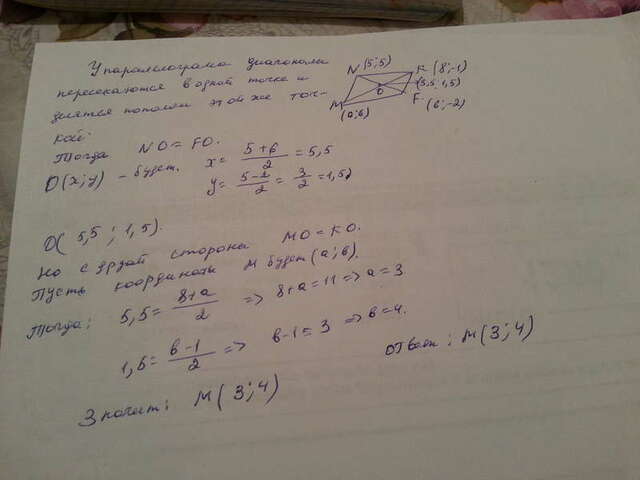 У параллелограма диагонали
пересекаются в одной точке и
делятся пополам этой же точ-
кой.
N (5; 5)
K (8; -1)
(5,5; 1,5)
O
M
(a; b)
F
(6; -2)
Тогда NO = FO.
O(x; y) - будет. x = 5+6/2 = 5,5
y = 5-2/2 = 3/2 = 1,5
O( 5,5 ; 1,5).
Но с другой стороны MO = KO.
Пусть координаты M будет (a; b).
Тогда; 5,5 = 8+a/2 => 8+a = 11 => a = 3.
1,5 = b-1/2 => b-1 = 3 => b = 4.
Значит; M( 3; 4)
ответ; M(3; 4)